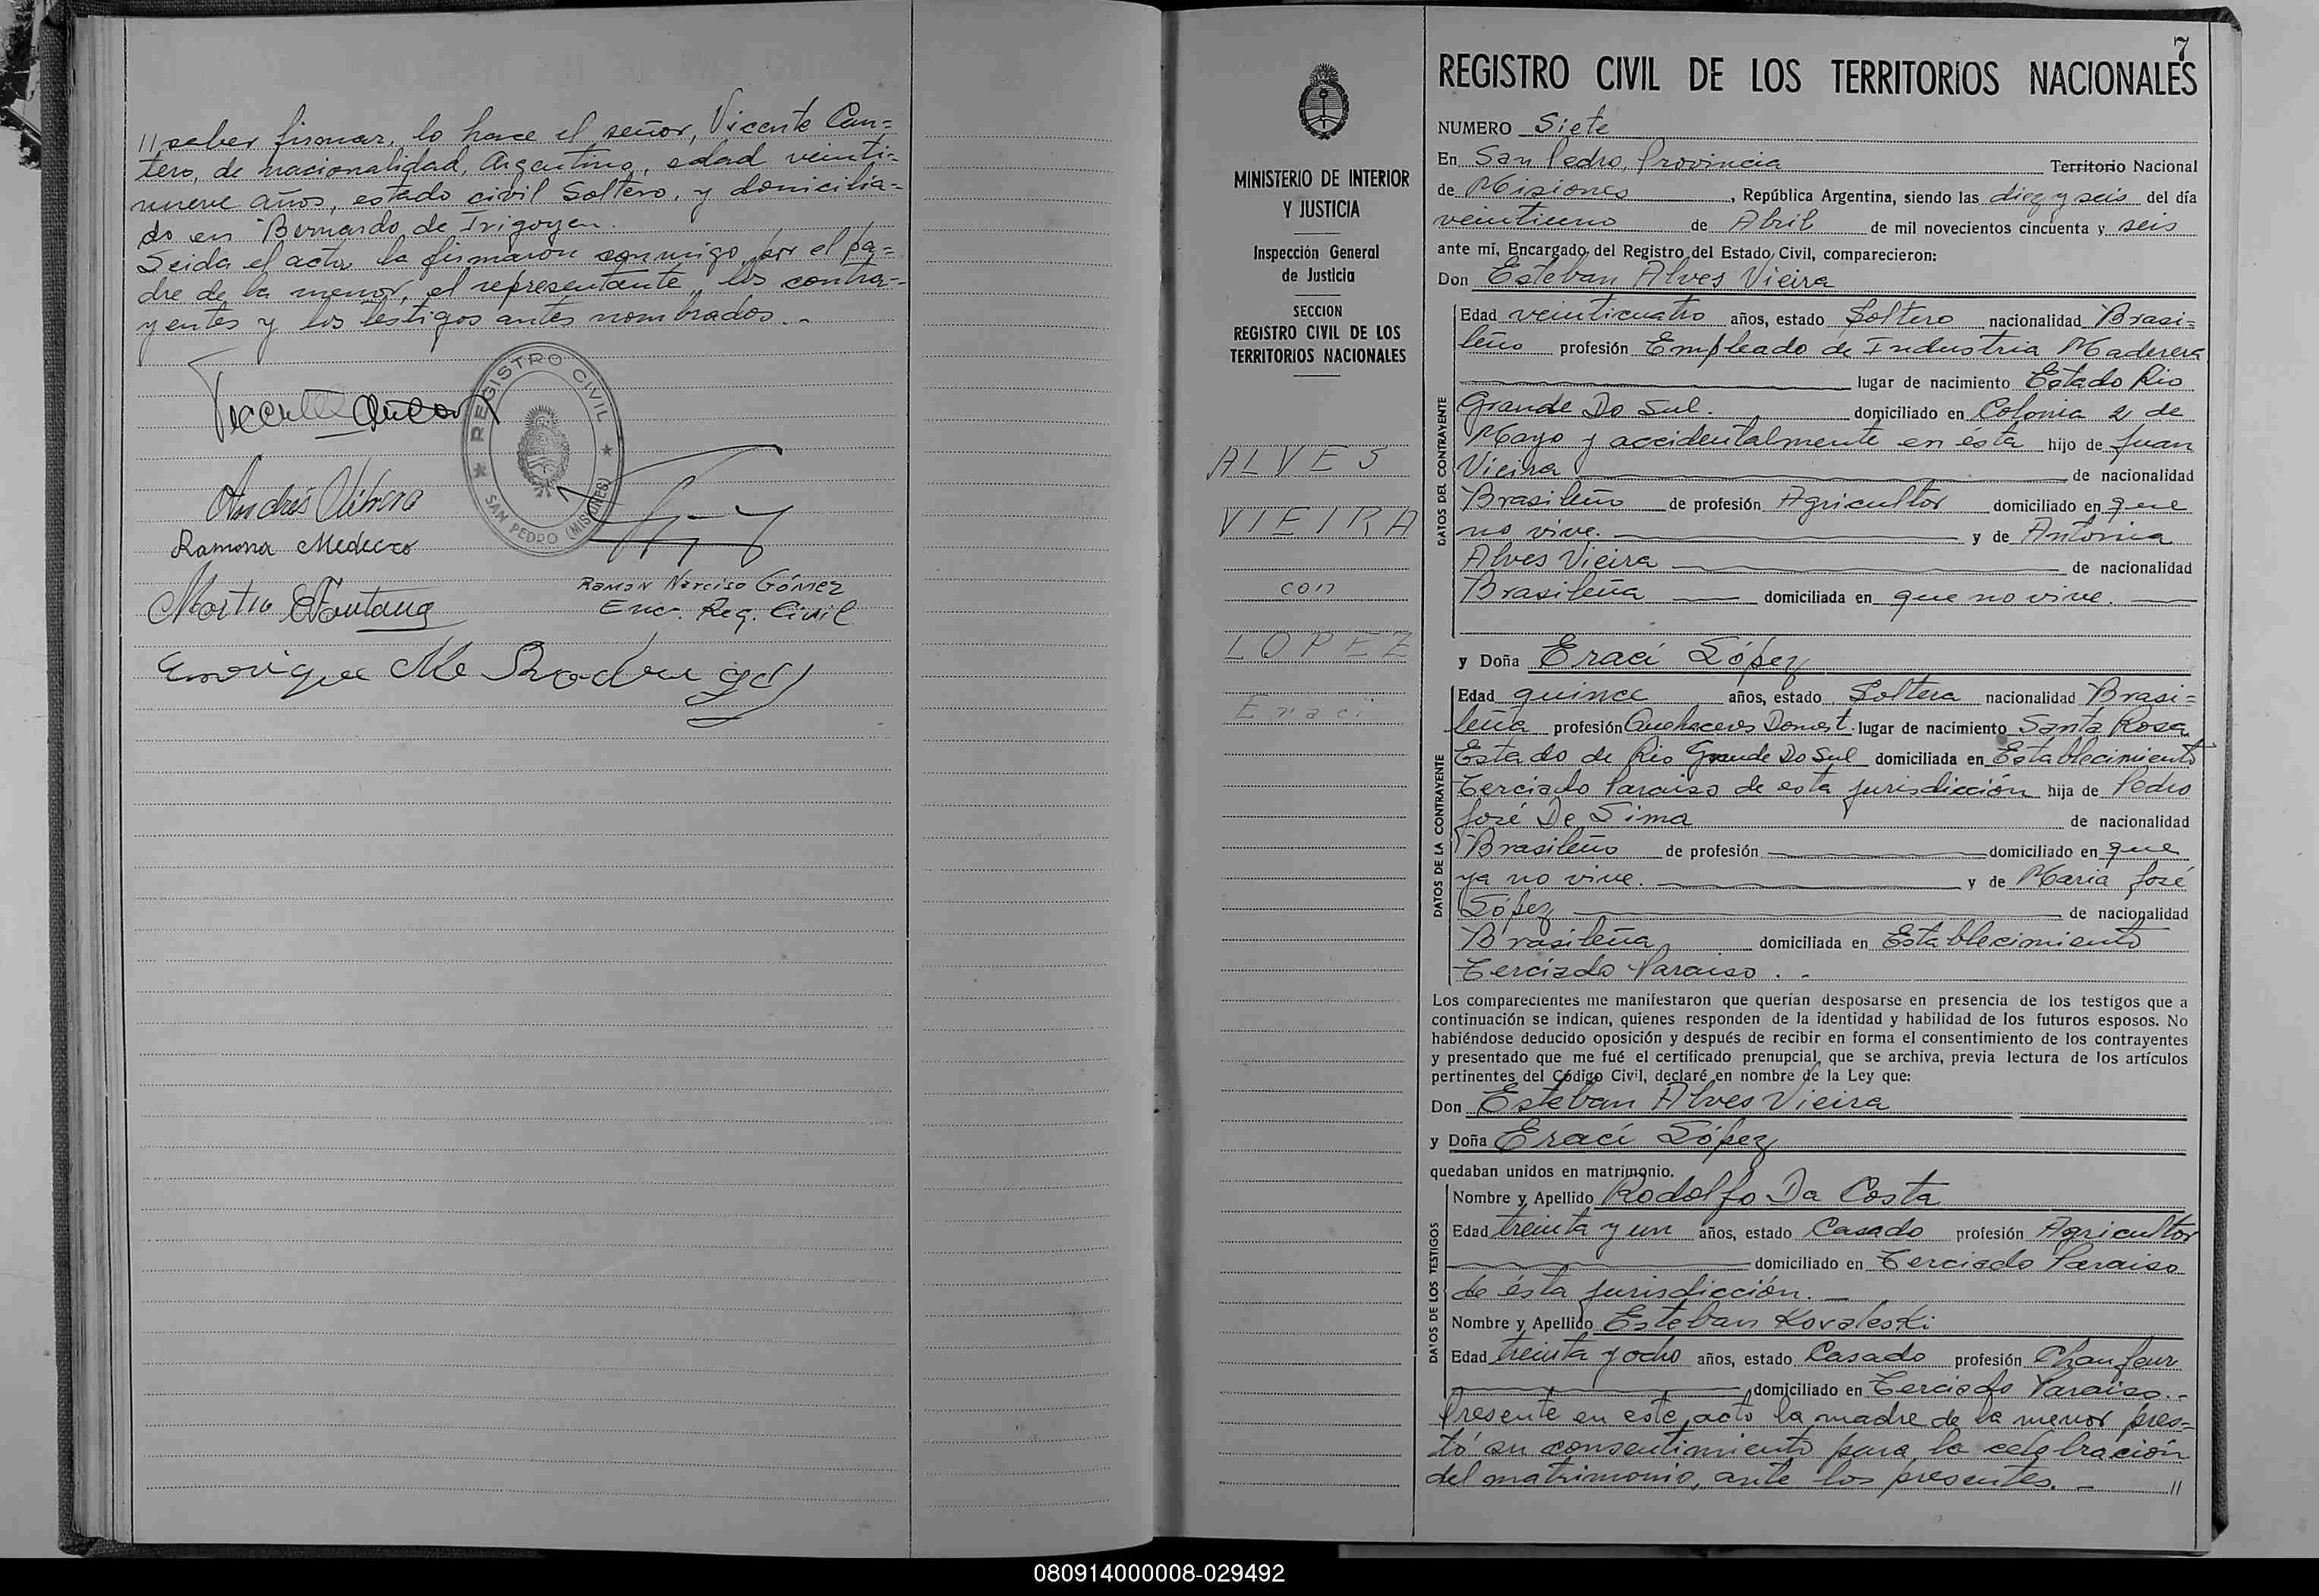 // saber firmar, lo hace el señor, Vicente Can=
tero, de nacionalidad, Argentino, edad veinti=
nueve años, estado civil Soltero, y domicilia=
do en Bernardo de Irigoyen.
Leida el acta la firmaron conmigo, por el pa=
dre de la menor, el representante, los contra-
yentes y los testigos antes nombrados.-
REGISTRO CIVIL
SAN PEDRO (MISIONES)
Ramona Medecro
Martin Fontana
Ramon Narciso Gómez
Enc. Reg. Civil
MINISTERIO DE INTERIOR
Y JUSTICIA
Inspección General
de Justicia
SECCION
REGISTRO CIVIL DE LOS
TERRITORIOS NACIONALES
ALVES
VIEIRA
con
LOPEZ
Eraci
7
REGISTRO CIVIL DE LOS TERRITORIOS NACIONALES
NUMERO Siete
En San Pedro, Provincia Territorio Nacional
de Misiones, República Argentina, siendo las diez y seis del día
veintiuno de Abril de mil novecientos cincuenta y seis
ante mí, Encargado del Registro del Estado Civil, comparecieron:
Don Esteban Alves Vieira
DATOS DEL CONTRAYENTE
Edad veinticuatro años, estado Soltero nacionalidad Brasi=
leño profesión Empleado de Industria Maderera
lugar de nacimiento Estado Rio
Grande Do Sul. domiciliado en Colonia 2 de
Mayo y accidentalmente en ésta hijo de Juan
Vieira de nacionalidad
Brasileño de profesión Agricultor domiciliado en que
no vive. y de Antonia
Alves Vieira de nacionalidad
Brasileña domiciliada en que no vive.
y Doña Eraci López
DATOS DE LA CONTRAYENTE
Edad quince años, estado Soltera nacionalidad Brasi=
leña profesión Quehaceres Domest. lugar de nacimiento Santa Rosa
Estado de Rio Grande Do Sul domiciliada en Establecimiento
Terciado Paraiso de esta jurisdicción hija de Pedro
José De Lima de nacionalidad
Brasileño de profesión domiciliado en que
ya no vive. y de Maria José
López de nacionalidad
Brasileña domiciliada en Establecimiento
Terciado Paraiso.-
Los comparecientes me manifestaron que querían desposarse en presencia de los testigos que a
continuación se indican, quienes responden de la identidad y habilidad de los futuros esposos. No
habiéndose deducido oposición y después de recibir en forma el consentimiento de los contrayentes
y presentado que me fué el certificado prenupcial, que se archiva, previa lectura de los artículos
pertinentes del Código Civil, declaré en nombre de la Ley que:
Don Esteban Alves Vieira
y Doña Eraci López
quedaban unidos en matrimonio.
DATOS DE LOS TESTIGOS
Nombre y Apellido Rodolfo Da Costa
Edad treinta y un años, estado Casado profesión Agricultor
domiciliado en Terciado Paraiso
de ésta jurisdicción.
Nombre y Apellido Esteban Kovaleski
Edad treinta y ocho años, estado Casado profesión Chaufeur
domiciliado en Terciado Paraiso.-
Presente en este acto la madre de la menor pres=
tó su consentimiento para la celebración
del matrimonio, ante los presentes.- //
080914000008-029492